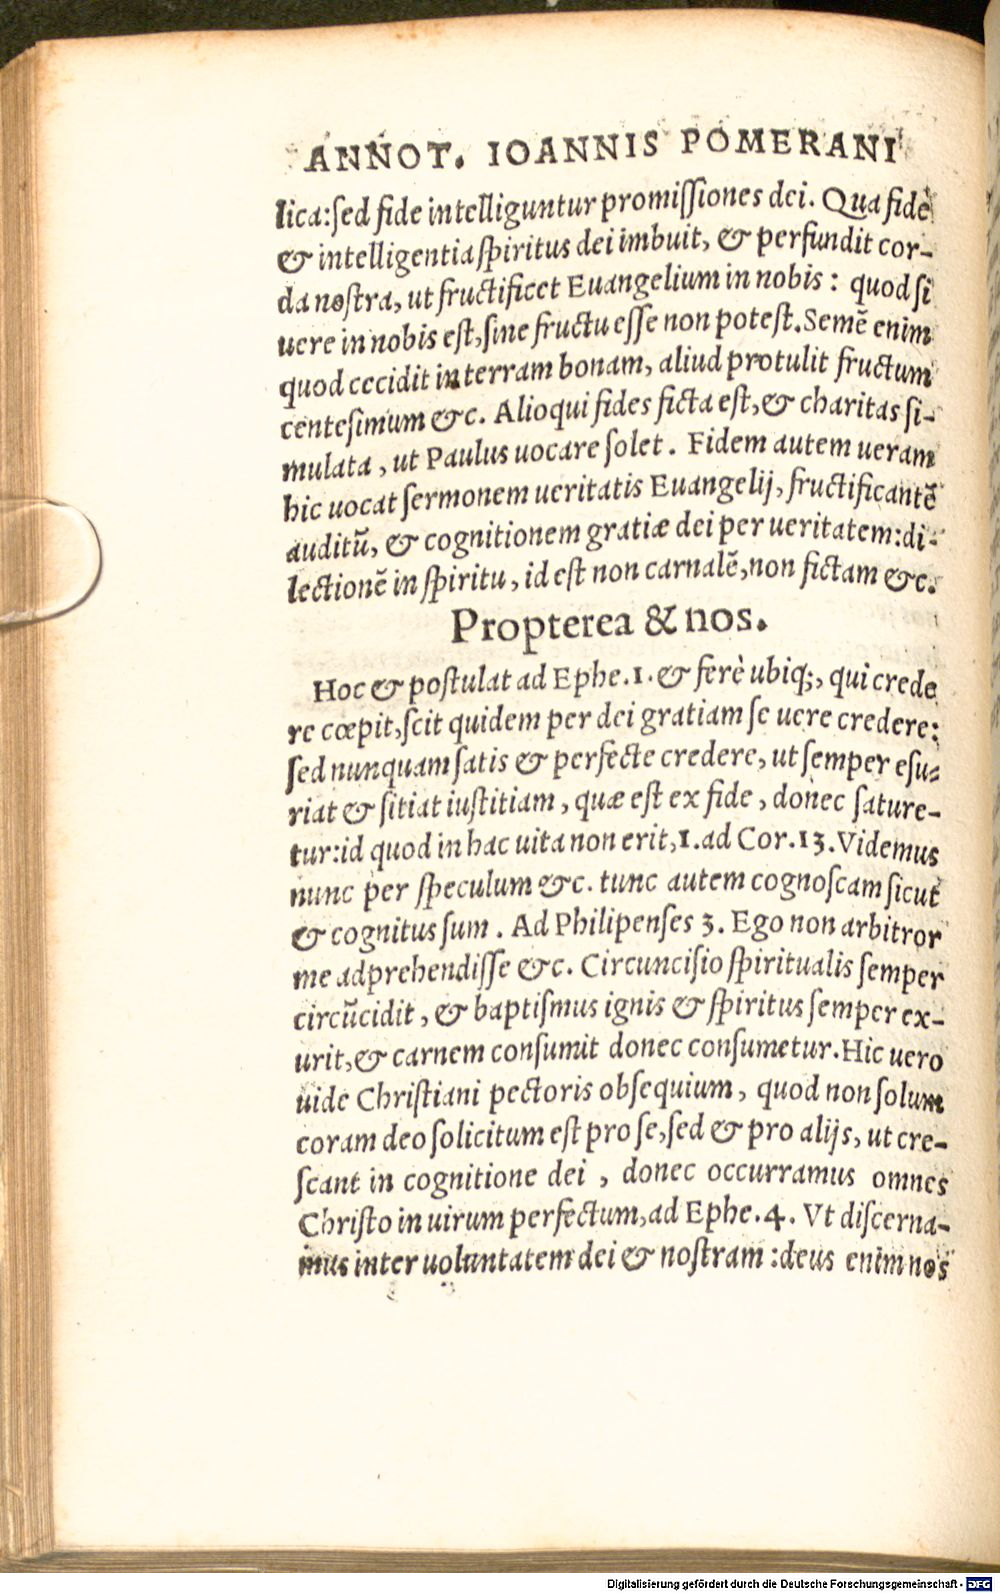 ANNOT. IOANNIS POMERANI
lica:sed fide intelliguntur promissiones dei. Qua fide
& intelligentia spiritus dei imbuit, & perfundit cor-
da nostra, ut fructificet Euangelium in nobis: quod si
uere in nobis est, sine fructu esse non potest. Semē enim
quod cecidit in terram bonam, aliud protulit fructum
centesimum &c. Alioqui fides ficta est, & charitas si-
mulata, ut Paulus uocare solet. Fidem autem ueram
hic uocat sermonem ueritatis Euangelij, fructificantē
auditū, & cognitionem gratiæ dei per ueritatem:di-
lectionē in spiritu, id est non carnalē, non fictam &c.
Propterea & nos.
Hoc & postulat ad Ephe.1. & ferè ubiq;, qui crede
re cœpit, scit quidem per dei gratiam se uere credere:
sed nunquam satis & perfecte credere, ut semper esu-
riat & sitiat iustitiam, quæ est ex fide, donec sature-
tur:id quod in hac uita non erit, 1. ad Cor.13. Videmus
nunc per speculum &c. tunc autem cognoscam sicut
& cognitus sum. Ad Philipenses 3. Ego non arbitror
me adprehendisse &c. Circuncisio spiritualis semper
circūcidit, & baptismus ignis & spiritus semper ex-
urit, & carnem consumit donec consumetur. Hic uero
uide Christiani pectoris obsequium, quod non solum
coram deo solicitum est pro se, sed & pro alijs, ut cre-
scant in cognitione dei, donec occurramus omnes
Christo in uirum perfectum, ad Ephe.4. Vt discerna-
mus inter uoluntatem dei & nostram:deus enim nos
Digitalisierung gefördert durch die Deutsche Forschungsgemeinschaft - DFG